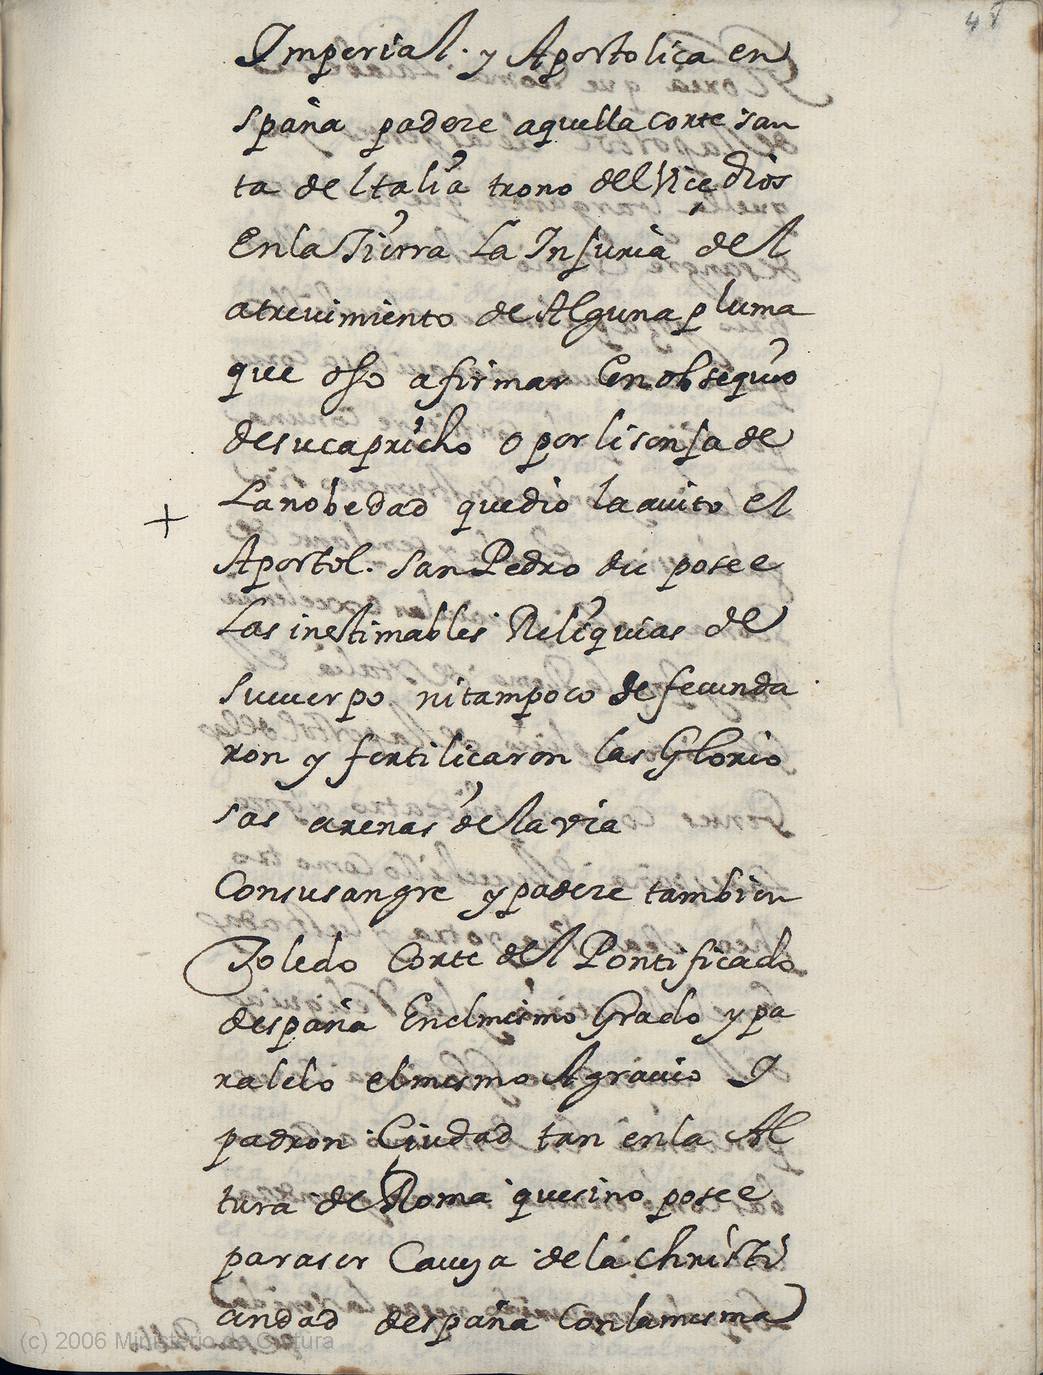 48
Imperial. y Apostolica en
spaña padeze aquella corte san
ta de Italia trono del Vice Dios
En la Tierra La Injuria del
atreuimiento de Alguna pluma
que oso afirmar En obsequio
de su capricho o por lisonja de
La nobedad que dio la auito el
Apostol. San Pedro du posee
Las inestimables Reliquias de
su cuerpo ni tampoco de fecunda
ron y fertilicaron las Glorio
sas arenas de la via
Con su sangre y padeze tambien
Toledo Corte del Pontificado
despaña En el mesmo Grado y pa
ralelo el mesmo Agrauio I
padron Ciudad tan en la Al
tura de Roma que sino posee
para ser Caueza de la Christi
andad despaña Con la mesma
+
(c) 2006 Ministerio de Cultura